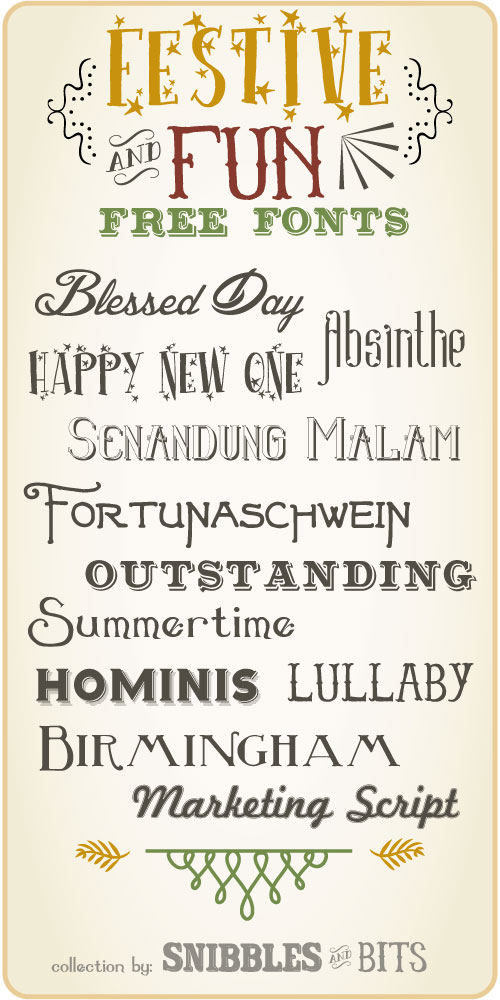 FESTIVE
AND FUN
FREE FONTS
Blessed Day
Absinthe
HAPPY NEW ONE
SENANDUNG MALAM
FORTUNASCHWEIN
OUTSTANDING
Summertime
HOMINIS LULLABY
BIRMINGHAM
Marketing Script
collection by: SNIBBLES AND BITS